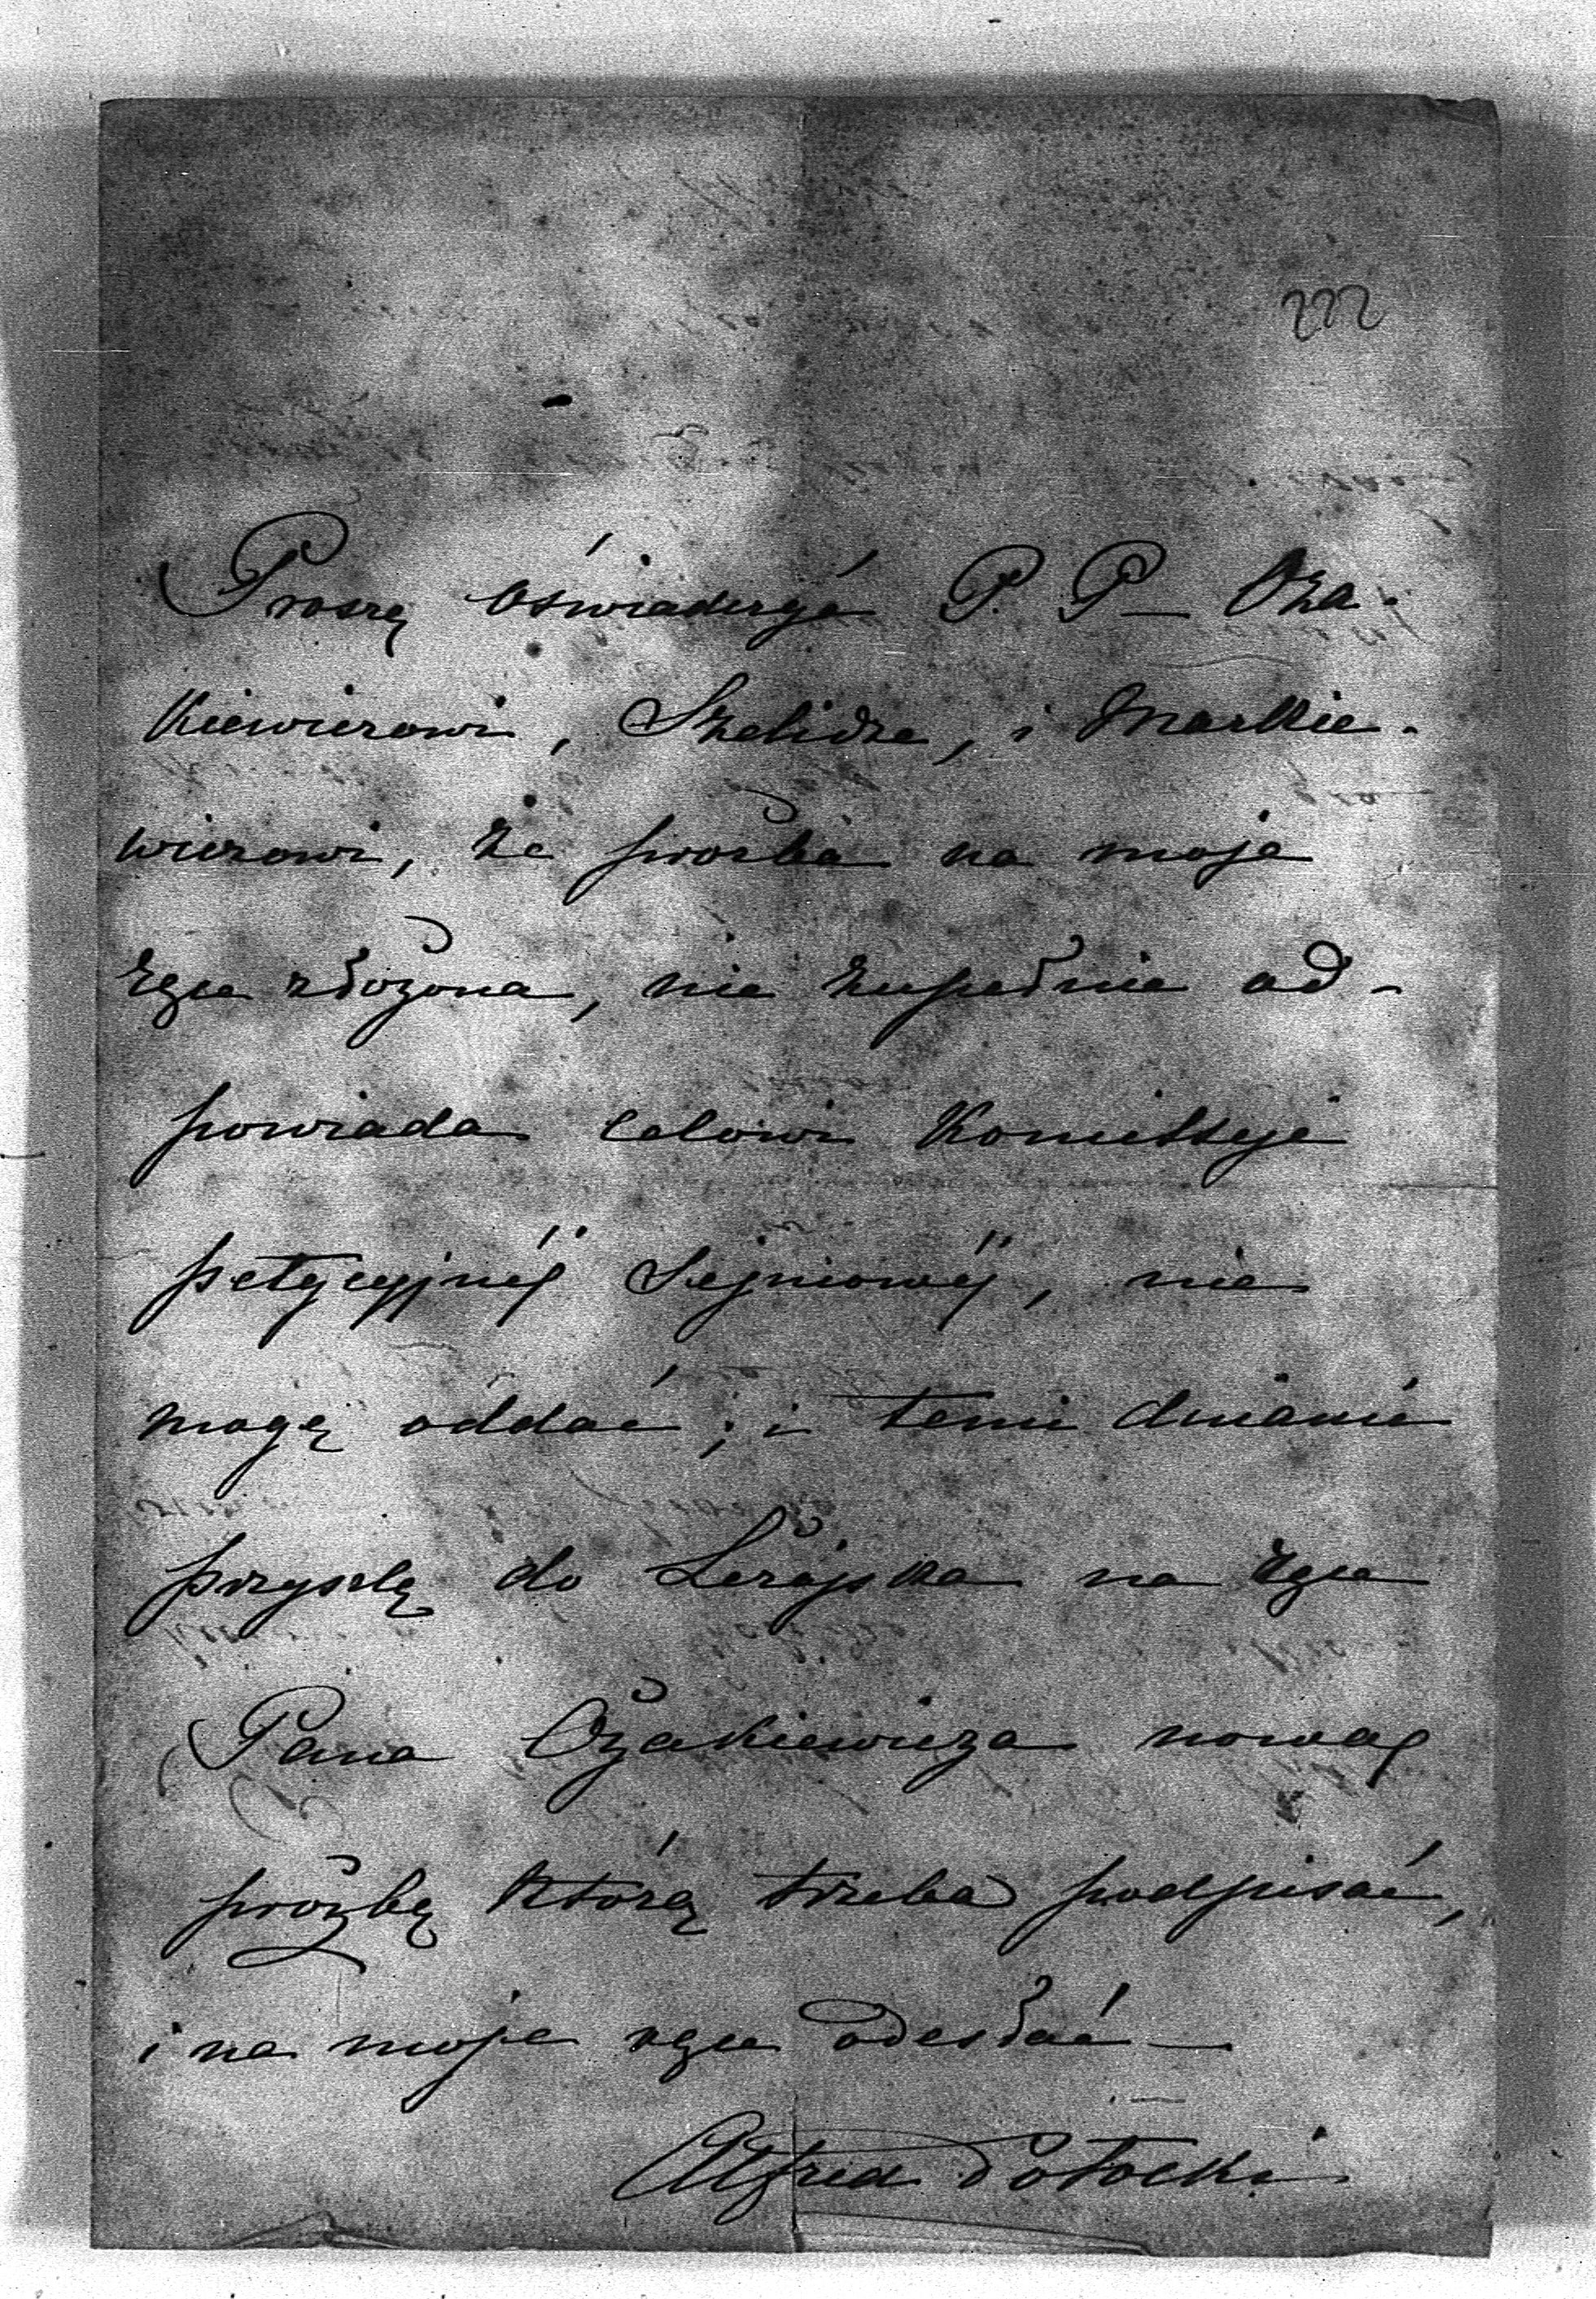 222
Proszę oświadczyć P. P– Oża-
kiewiczowi, Szelidze, i Markie-
wiczowi, że prośba na moje
ręce złożona, nie zupełnie od-
powiada celowi Komissyi
petycyjnéj Sejmowéj, nie
mogę oddać; i temi dniami
przyszlę do Leżajska na ręce
Pana Ożakiewicza nową
proźbę którą trzeba podpisać,
i na moje ręce odesłać —
Alfred Potocki